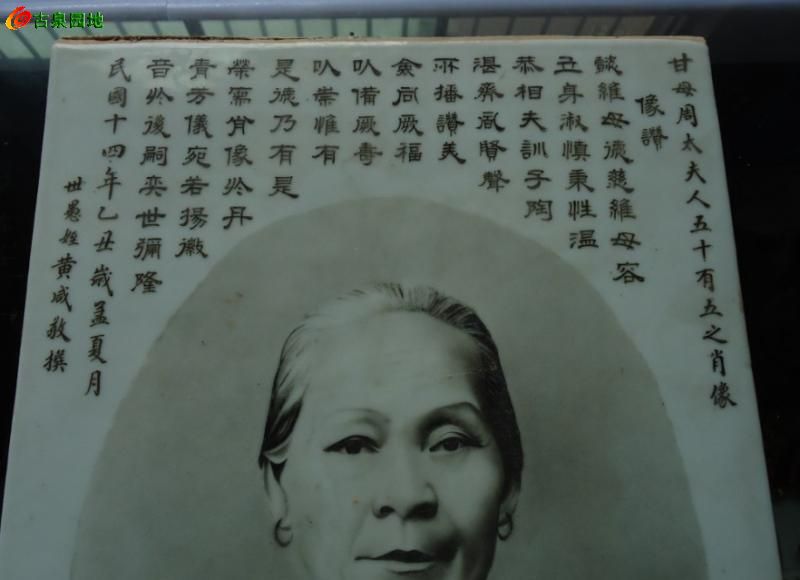 古泉园地
甘母周太夫人五十有五之肖像
像讚
懿維母德慈維母容
立身淑慎秉性温
恭相夫訓子陶
湛齊賢聲
所播讚美
僉同厥福
以備厥壽
以崇惟有
是德乃有是
榮寫肖像於丹
青芳儀宛若揚徽
音於後嗣奕世彌隆
民國十四年乙丑歲孟夏月
世愚姪黃咸敬撰